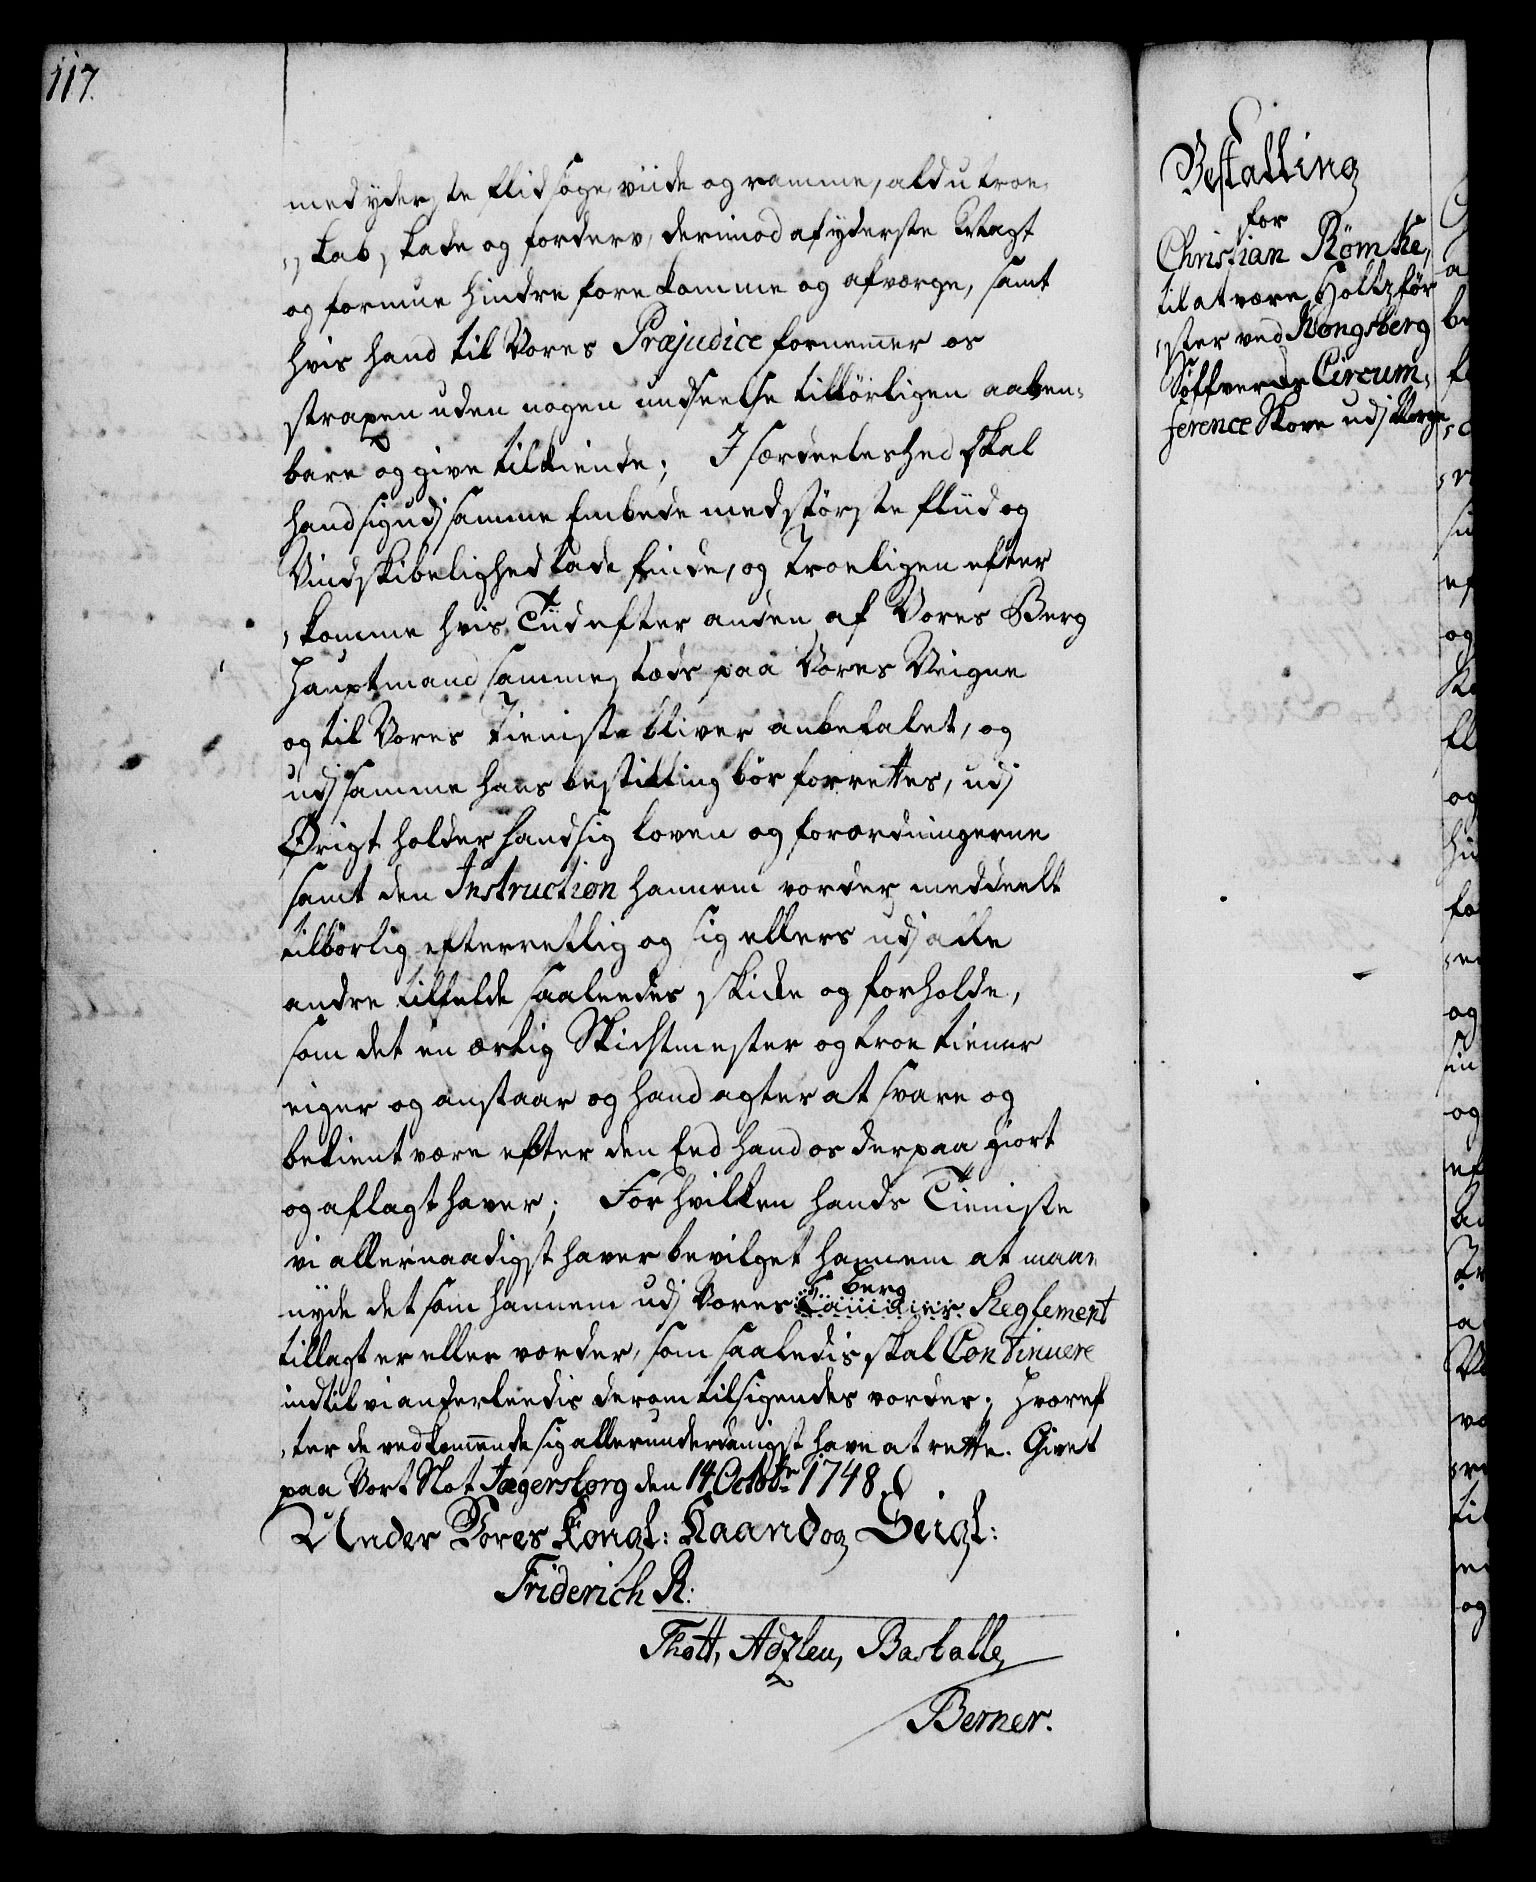 117.
med yderste flid søge, viide og ramme, ald utroe-
skab, skade og forderv, derimod af yderste Magt
og formue hindre forekomme og afværge, samt
hvis hand til Vores Præjudice fornemer os
straxen uden nogen undseelse tilbörligen aaben-
bare og give tilkiende; I særdeeleshed skal
hand sig udj samme Embede med störste fliid og
Vindskibelighed lade finde, og Troeligen efter
komme hvis Tiid efter anden af Vores Berg
Hauptmand sammesteds paa Vores Veigne
og til Vores Tieniste bliver anbefalet, og
udj samme hans bestilling bör forrettes, udj
Øvrigt holder hand sig loven og forordningerne
samt den Instruction hannem vorder meddeelt
tilbörlig efterretlig og sig ellers udj alle
andre tilfelde saaleedes skicke og forholde,
som det en ærlig Skichtmester og troe tiener
eiger og anstaar og hand agter at svare og
bekient være efter den Eed hand os derpaa giort
og aflagt haver; For hvilken hands Tieniste
vi allernaadigst haver bevilget hannem at maae
nyde det som hannem udj Vores Berg Reglement
tillagt er eller vorder, som saaledis skal Continuere
indtil vi anderleedis derom tilsigendes vorder; Hvoref
ter de vedkomende sig allerunderdanigst have at rette. Givet
paa Vort Slot Jægersborg den 14 Octobr 1748
Under Vores Kongl: Haand og Seigl:
Friderich R:
Thott, Adzleu, Barballe,
Berner.
Bestalling
for
Christian Römke,
til at være Holtzför
ster ved Kongsberg
Söffverds Circum-
ference Skove udj Norge